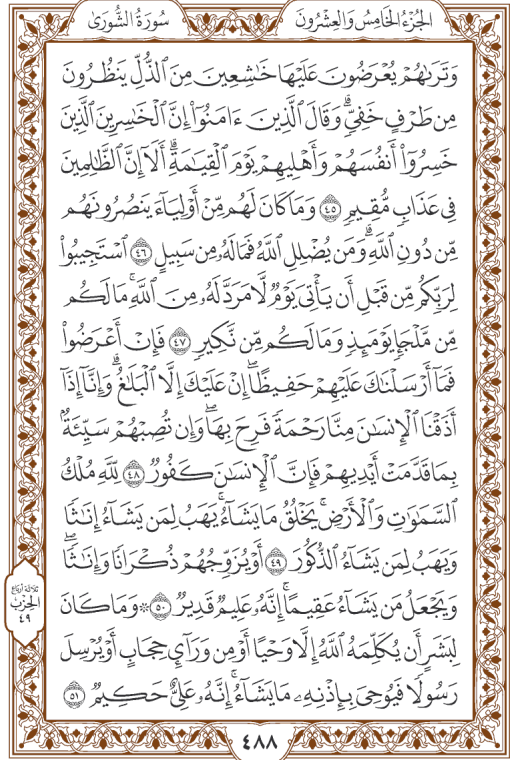 الجُزْءُ الخَامِسُ وَالعِشْرُونَ
سُورَةُ الشُّورَى
وَتَرَىٰهُمْ يُعْرَضُونَ عَلَيْهَا خَٰشِعِينَ مِنَ ٱلذُّلِّ يَنظُرُونَ
مِن طَرْفٍ خَفِىٍّۗ وَقَالَ ٱلَّذِينَ ءَامَنُوٓا۟ إِنَّ ٱلْخَٰسِرِينَ ٱلَّذِينَ
خَسِرُوٓا۟ أَنفُسَهُمْ وَأَهْلِيهِمْ يَوْمَ ٱلْقِيَٰمَةِۗ أَلَآ إِنَّ ٱلظَّٰلِمِينَ
فِى عَذَابٍ مُّقِيمٍ ٤٥ وَمَا كَانَ لَهُم مِّنْ أَوْلِيَآءَ يَنصُرُونَهُم
مِّن دُونِ ٱللَّهِۗ وَمَن يُضْلِلِ ٱللَّهُ فَمَا لَهُۥ مِن سَبِيلٍ ٤٦ ٱسْتَجِيبُوا۟
لِرَبِّكُم مِّن قَبْلِ أَن يَأْتِىَ يَوْمٌ لَّا مَرَدَّ لَهُۥ مِنَ ٱللَّهِۚ مَا لَكُم
مِّن مَّلْجَإٍ يَوْمَئِذٍ وَمَا لَكُم مِّن نَّكِيرٍ ٤٧ فَإِنْ أَعْرَضُوا۟
فَمَآ أَرْسَلْنَٰكَ عَلَيْهِمْ حَفِيظًاۖ إِنْ عَلَيْكَ إِلَّا ٱلْبَلَٰغُۗ وَإِنَّآ إِذَآ
أَذَقْنَا ٱلْإِنسَٰنَ مِنَّا رَحْمَةً فَرِحَ بِهَاۖ وَإِن تُصِبْهُمْ سَيِّئَةٌۢ
بِمَا قَدَّمَتْ أَيْدِيهِمْ فَإِنَّ ٱلْإِنسَٰنَ كَفُورٌ ٤٨ لِّلَّهِ مُلْكُ
ٱلسَّمَٰوَٰتِ وَٱلْأَرْضِۚ يَخْلُقُ مَا يَشَآءُۚ يَهَبُ لِمَن يَشَآءُ إِنَٰثًا
وَيَهَبُ لِمَن يَشَآءُ ٱلذُّكُورَ ٤٩ أَوْ يُزَوِّجُهُمْ ذُكْرَانًا وَإِنَٰثًاۖ
وَيَجْعَلُ مَن يَشَآءُ عَقِيمًاۚ إِنَّهُۥ عَلِيمٌ قَدِيرٌ ٥٠ ۞ وَمَا كَانَ
لِبَشَرٍ أَن يُكَلِّمَهُ ٱللَّهُ إِلَّا وَحْيًا أَوْ مِن وَرَآئِ حِجَابٍ أَوْ يُرْسِلَ
رَسُولًا فَيُوحِىَ بِإِذْنِهِۦ مَا يَشَآءُۚ إِنَّهُۥ عَلِىٌّ حَكِيمٌ ٥١
ثلاثة أرباع
الحزب
٤٩
٤٨٨